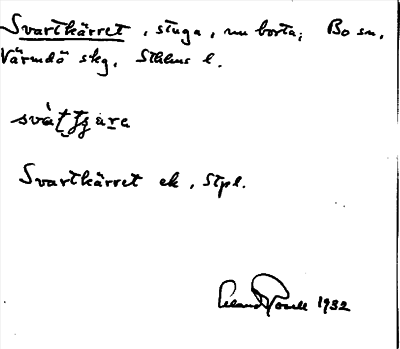 Svartkärret, stuga, nu borta; Bo sn,
Värmdö skg, Sthlms l.
Svartkärret ek, Stpl.
1932